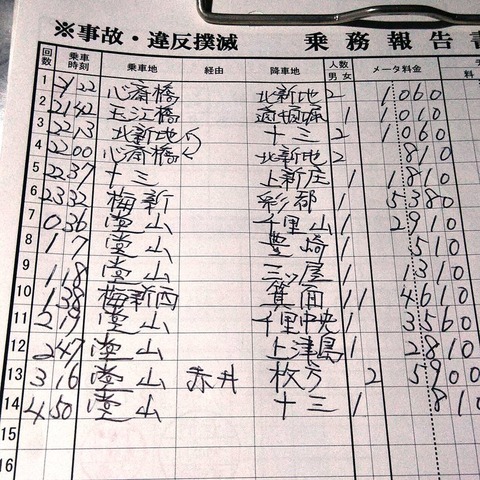 ※事故・違反撲滅 乗務報告書
回数 乗車時刻 乗車地 経由 降車地 人数 男 女 メータ料金
1 22 心斎橋 北新地 2 1060
2 2142 玉江橋 1 1010
3 2213 北新地 十三 2 1060
4 2200 心斎橋 北新地 2 810
5 2237 十三 上新庄 1 1810
6 2332 梅新 彩都 1 5380
7 036 堂山 千里山 1 2910
8 17 堂山 豊崎 1 510
9 118 堂山 三ッ屋 1 1310
10 138 梅新西 箕面 1 1 4610
11 219 堂山 千里中央 1 3560
12 247 堂山 上津島 1 2810
13 316 堂山 赤井 枚方 2 5900
14 450 堂山 十三 1 810
15
16